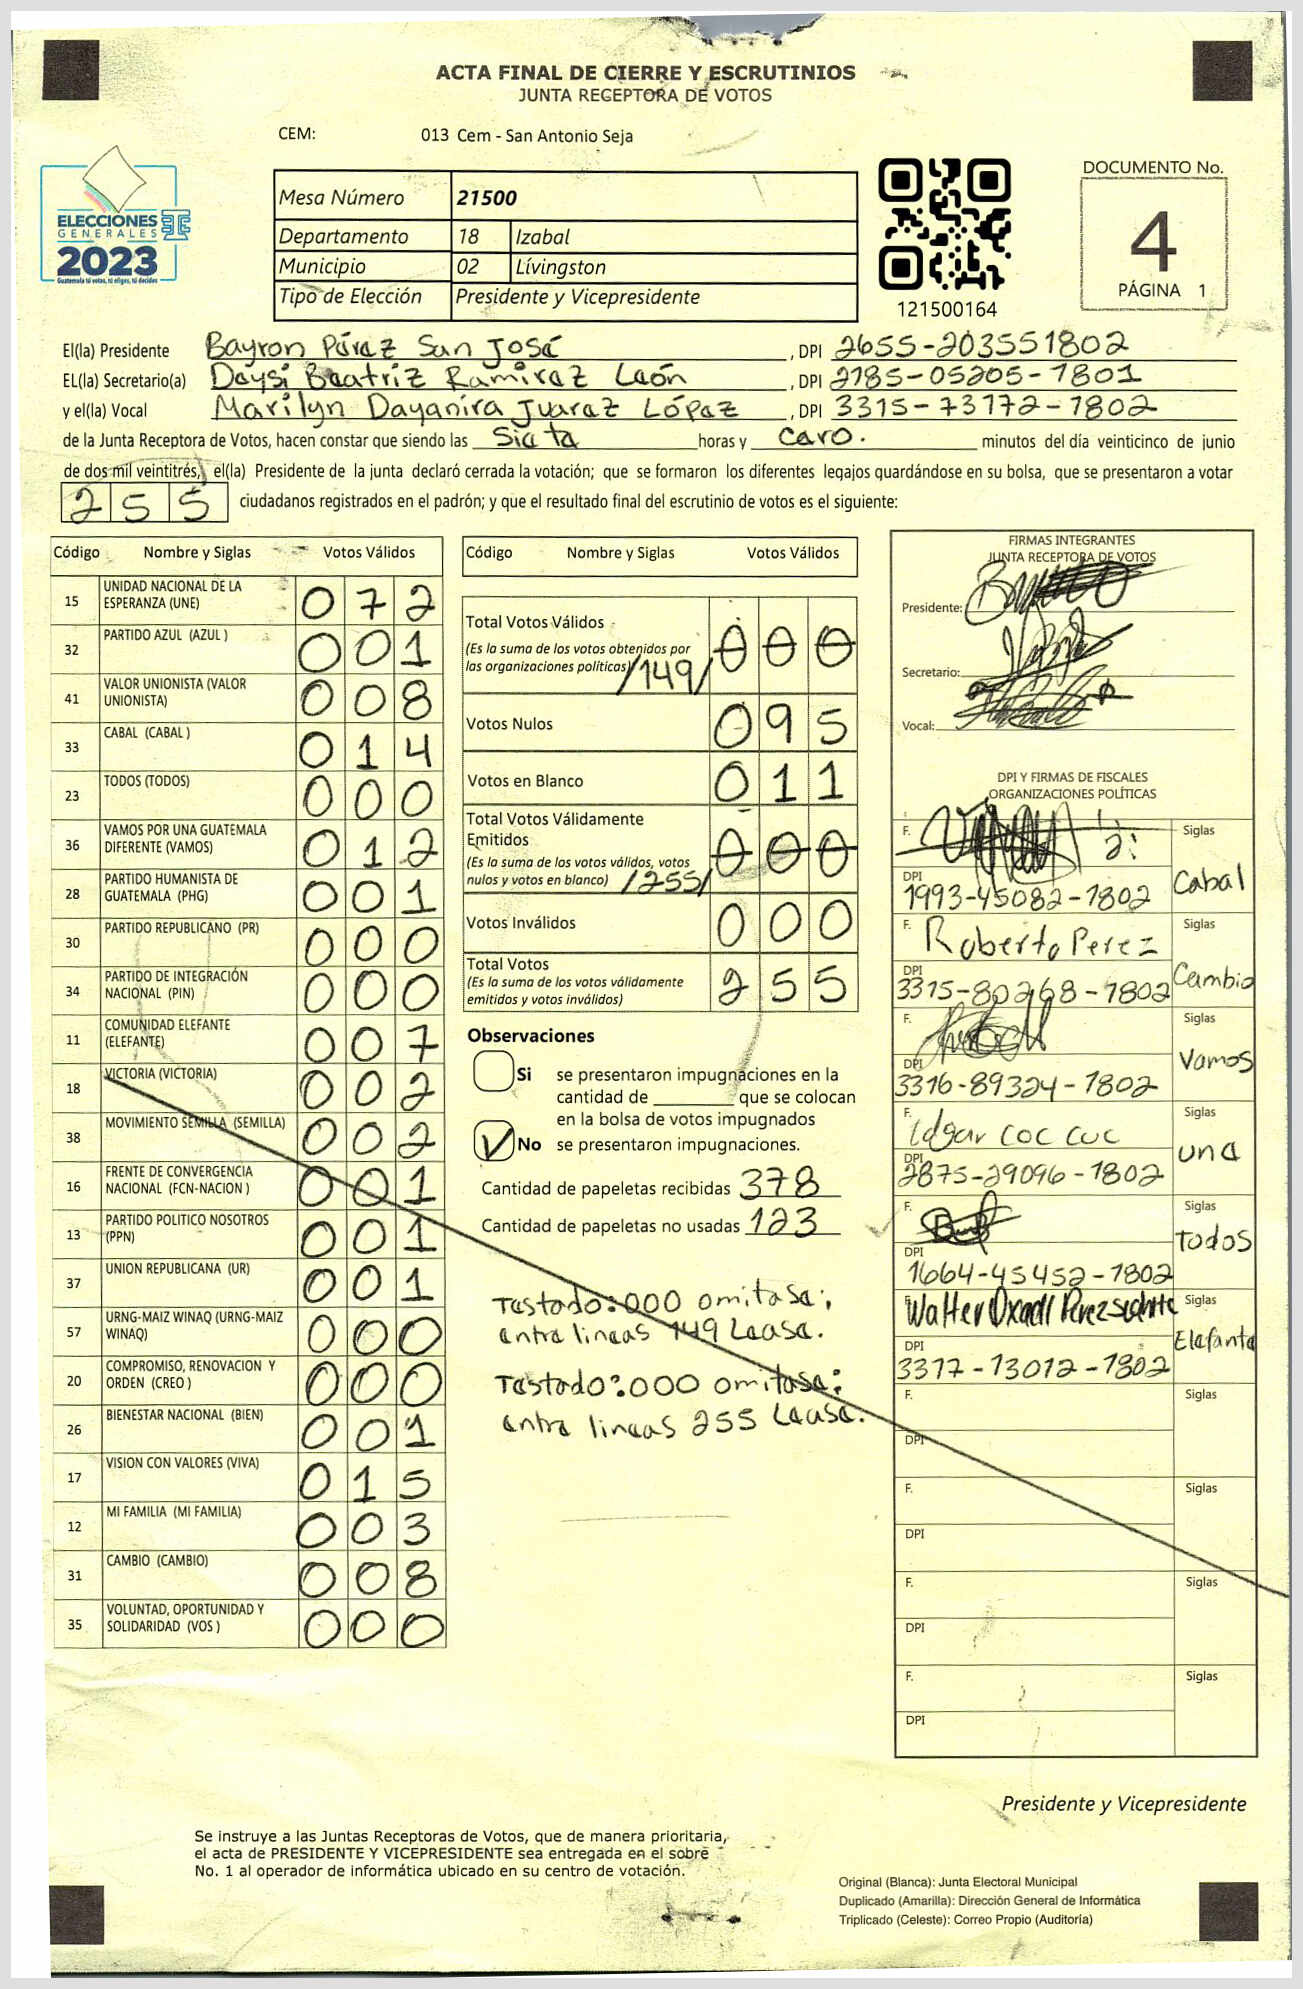 ACTA FINAL DE CIERRE Y ESCRUTINIOS
JUNTA RECEPTORA DE VOTOS
CEM: 013 Cem - San Antonio Seja
ELECCIONES
GENERALES
2023
Guatemala tú votas, tú eliges, tú decides
Mesa Número 21500
Departamento 18 Izabal
Municipio 02 Lívingston
Tipo de Elección Presidente y Vicepresidente
121500164
DOCUMENTO No.
4
PÁGINA 1
El(la) Presidente Bayron Pérez San José, DPI 2655-203551802
EL(la) Secretario(a) Deysi Beatriz Ramirez León, DPI 2785-05205-1801
y el(la) Vocal Marilyn Dayanira Juarez López, DPI 3315-73172-1802
de la Junta Receptora de Votos, hacen constar que siendo las Siete horas y cero. minutos del día veinticinco de junio
de dos mil veintitrés, el(la) Presidente de la junta declaró cerrada la votación; que se formaron los diferentes legajos guardándose en su bolsa, que se presentaron a votar
255 ciudadanos registrados en el padrón; y que el resultado final del escrutinio de votos es el siguiente:
Código Nombre y Siglas Votos Válidos
15 UNIDAD NACIONAL DE LA ESPERANZA (UNE) 072
32 PARTIDO AZUL (AZUL ) 001
41 VALOR UNIONISTA (VALOR UNIONISTA) 008
33 CABAL (CABAL ) 014
23 TODOS (TODOS) 000
36 VAMOS POR UNA GUATEMALA DIFERENTE (VAMOS) 012
28 PARTIDO HUMANISTA DE GUATEMALA (PHG) 001
30 PARTIDO REPUBLICANO (PR) 000
34 PARTIDO DE INTEGRACIÓN NACIONAL (PIN) 000
11 COMUNIDAD ELEFANTE (ELEFANTE) 007
18 VICTORIA (VICTORIA) 002
38 MOVIMIENTO SEMILLA (SEMILLA) 002
16 FRENTE DE CONVERGENCIA NACIONAL (FCN-NACION ) 001
13 PARTIDO POLITICO NOSOTROS (PPN) 001
37 UNION REPUBLICANA (UR) 001
57 URNG-MAIZ WINAQ (URNG-MAIZ WINAQ) 000
20 COMPROMISO, RENOVACION Y ORDEN (CREO ) 000
26 BIENESTAR NACIONAL (BIEN) 001
17 VISION CON VALORES (VIVA) 015
12 MI FAMILIA (MI FAMILIA) 003
31 CAMBIO (CAMBIO) 008
35 VOLUNTAD, OPORTUNIDAD Y SOLIDARIDAD (VOS ) 000
Código Nombre y Siglas Votos Válidos
Total Votos Válidos 000
(Es la suma de los votos obtenidos por
las organizaciones políticas) /149/
Votos Nulos 095
Votos en Blanco 011
Total Votos Válidamente
Emitidos 000
(Es la suma de los votos válidos, votos
nulos y votos en blanco) /255/
Votos Inválidos 000
Total Votos 255
(Es la suma de los votos válidamente
emitidos y votos inválidos)
Observaciones
Si se presentaron impugnaciones en la
cantidad de ________ que se colocan
en la bolsa de votos impugnados
No se presentaron impugnaciones.
Cantidad de papeletas recibidas 378
Cantidad de papeletas no usadas 123
Testado:000 omitase;
entre lineas 149 Lease.
Testado:000 omitase:
entre lineas 255 Lease.
FIRMAS INTEGRANTES
JUNTA RECEPTORA DE VOTOS
Presidente:
Secretario:
Vocal:
DPI Y FIRMAS DE FISCALES
ORGANIZACIONES POLÍTICAS
F. Siglas
DPI 1993-45082-1802 Cabal
F. Roberto Perez Siglas
DPI 3315-80268-1802 Cambio
F. Siglas
DPI 3316-89324-1802 Vamos
F. Edgar coc cuc Siglas
DPI 2875-29096-1802 una
F. Siglas
DPI 1664-45452-1802 Todos
F. Walter Perez Siglas
DPI 3317-13012-1802 Elefante
F. Siglas
DPI
F. Siglas
DPI
F. Siglas
DPI
F. Siglas
DPI
Presidente y Vicepresidente
Se instruye a las Juntas Receptoras de Votos, que de manera prioritaria,
el acta de PRESIDENTE Y VICEPRESIDENTE sea entregada en el sobre
No. 1 al operador de informática ubicado en su centro de votación.
Original (Blanca): Junta Electoral Municipal
Duplicado (Amarilla): Dirección General de Informática
Triplicado (Celeste): Correo Propio (Auditoría)